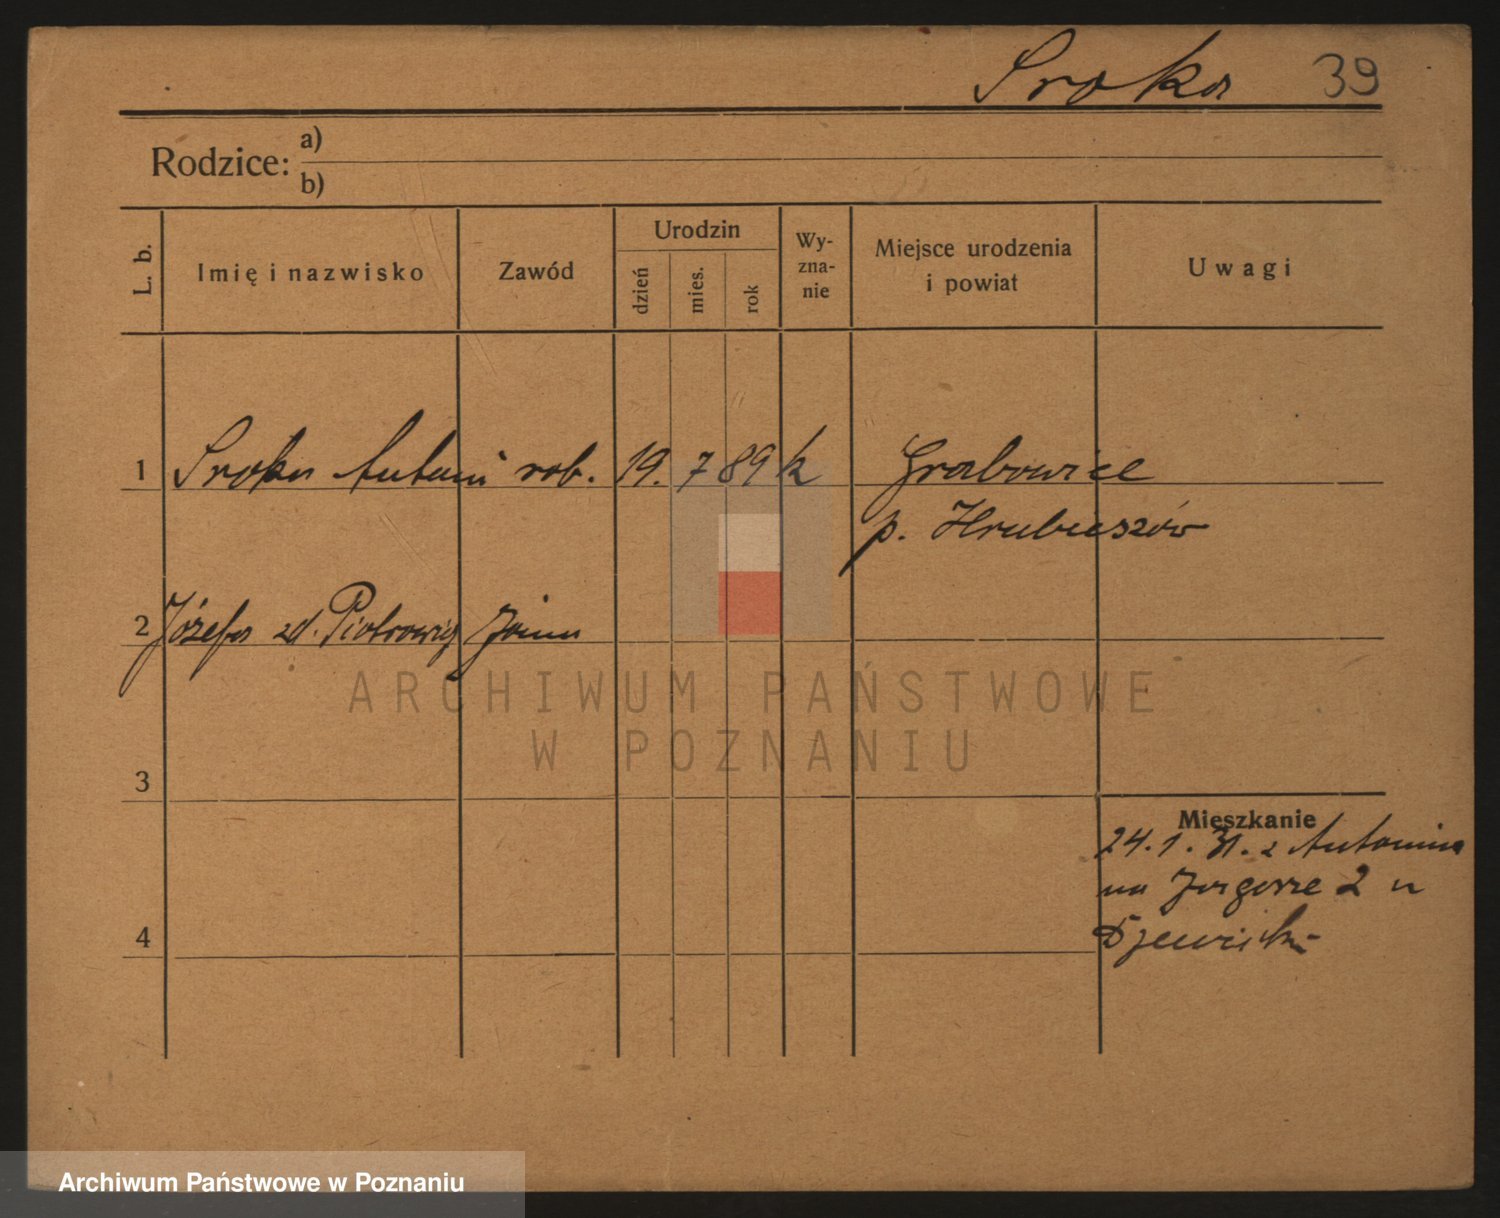 Sroka 39
Rodzice: a)
b)
L. b. Imię i nazwisko Zawód Urodzin dzień mies. rok Wy-zna-nie Miejsce urodzenia i powiat Uwagi
1 Sroka Antoni rob. 19. 7 89 k Grabowice
p. Hrubieszów
2 Józefa zd. Piotrowig żona
ARCHIWUM PAŃSTWOWE
W POZNANIU
3
Mieszkanie
24. 1. 31. z Antonina
na Zagorze 2 u
4
Archiwum Państwowe w Poznaniu